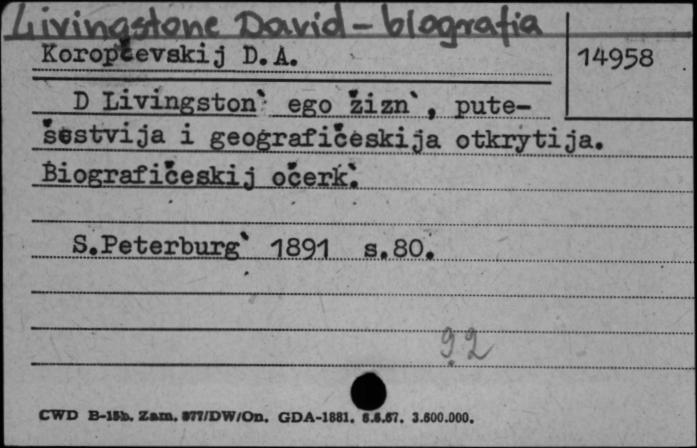 Livingstone David - biografia
Koropčevskij D.A.
14958
D Livingston` ego žizn`, pute-
šestvija i geografičeskija otkrytija.
Biografičeskij očerk`.
S.Peterburg` 1891 s.80.
92
CWD B-15b. Zam. 877/DW/On. GDA-1881. 6.6.67. 3.600.000.